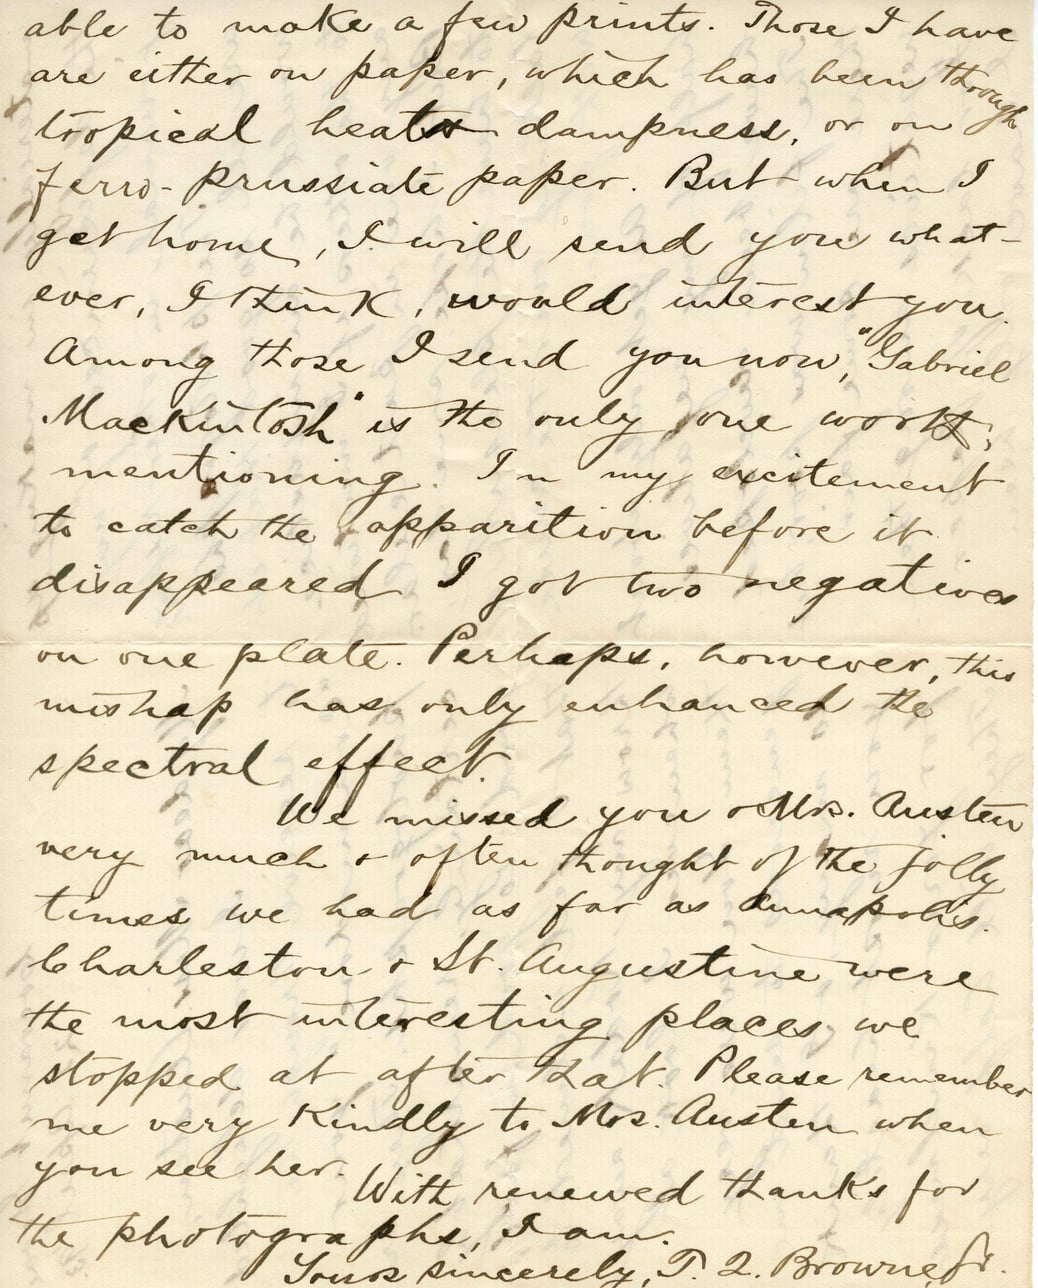 able to make a few prints. Those I have
are either on paper, which has been through
tropical heat & dampness, or on
ferro-prussiate paper. But when I
get home, I will send you what-
ever, I think, would interest you.
Among those I send you now, "Gabriel
Mackintosh" is the only one worth
mentioning. In my excitement
to catch the apparition before it
disappeared I got two negatives
on one plate. Perhaps, however, this
mishap has only enhanced the
spectral effect.
We missed you & Mrs. Austen
very much & often thought of the jolly
times we had as far as Annapolis.
Charleston & St. Augustine were
the most interesting places we
stopped at after that. Please remember
me very kindly to Mrs. Austen when
you see her.
With renewed thanks for
the photographs, I am.
Yours sincerely, T. Q. Browne Jr.